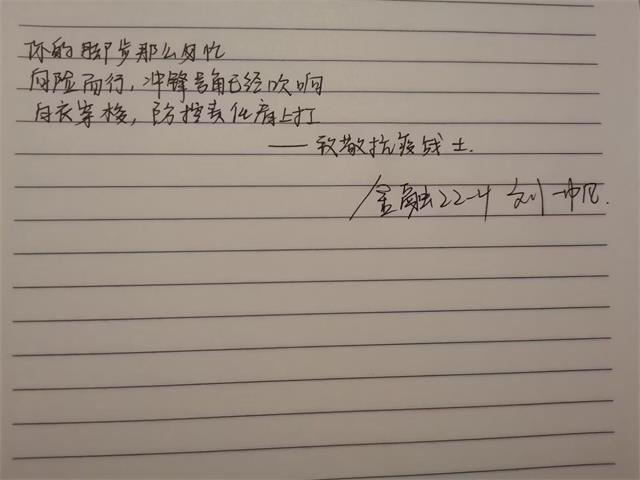 你的脚步那么匆忙
向险而行，冲锋号角已经吹响
白衣穿梭，防控责任肩上扛
——致敬抗疫战士.
金融22-4 刘一帆.